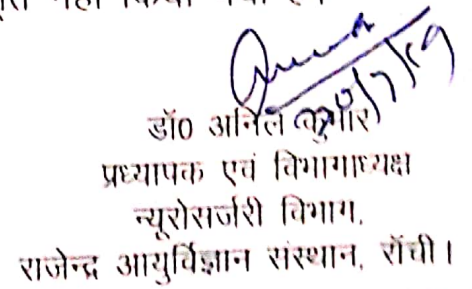 नहीं किया गया
20/7/19
डॉ0 अनिल कुमार
प्रध्यापक एवं विभागाध्यक्ष
न्यूरोसर्जरी विभाग,
राजेन्द्र आयुर्विज्ञान संस्थान, राँची।